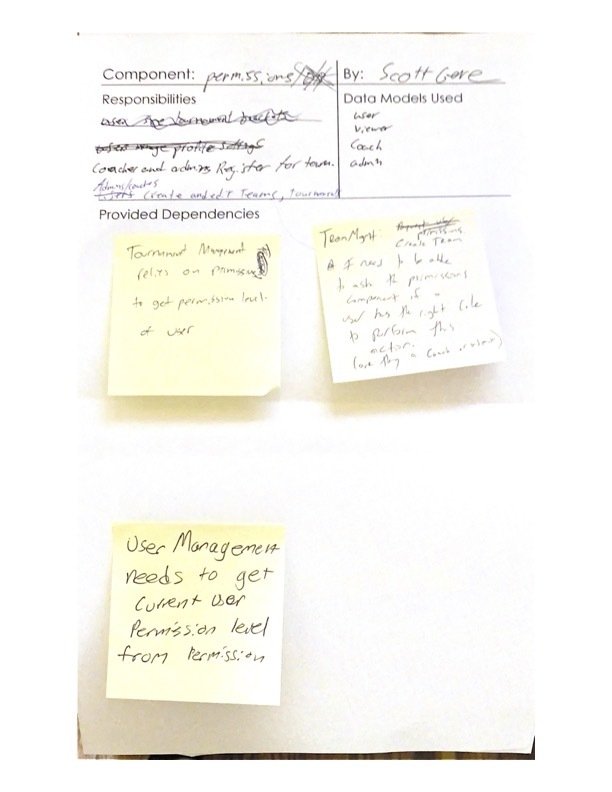 Component: permissions
By: Scott Gore
Responsibilities
Data Models Used
users manage profile settings
Coaches and admins Register for team.
Admins/coaches
Users Create and edit Teams, tournament
user
viewer
coach
admin
Provided Dependencies
Tournament Management
relies on permissions
to get permission level
of user
Team Mgmt: permissions
Create Team
I need to be able
to ask the permissions
component if a
user has the right role
to perform this
action.
(are they a coach or admin)
User Management
needs to get
Current User
Permission level
from Permission